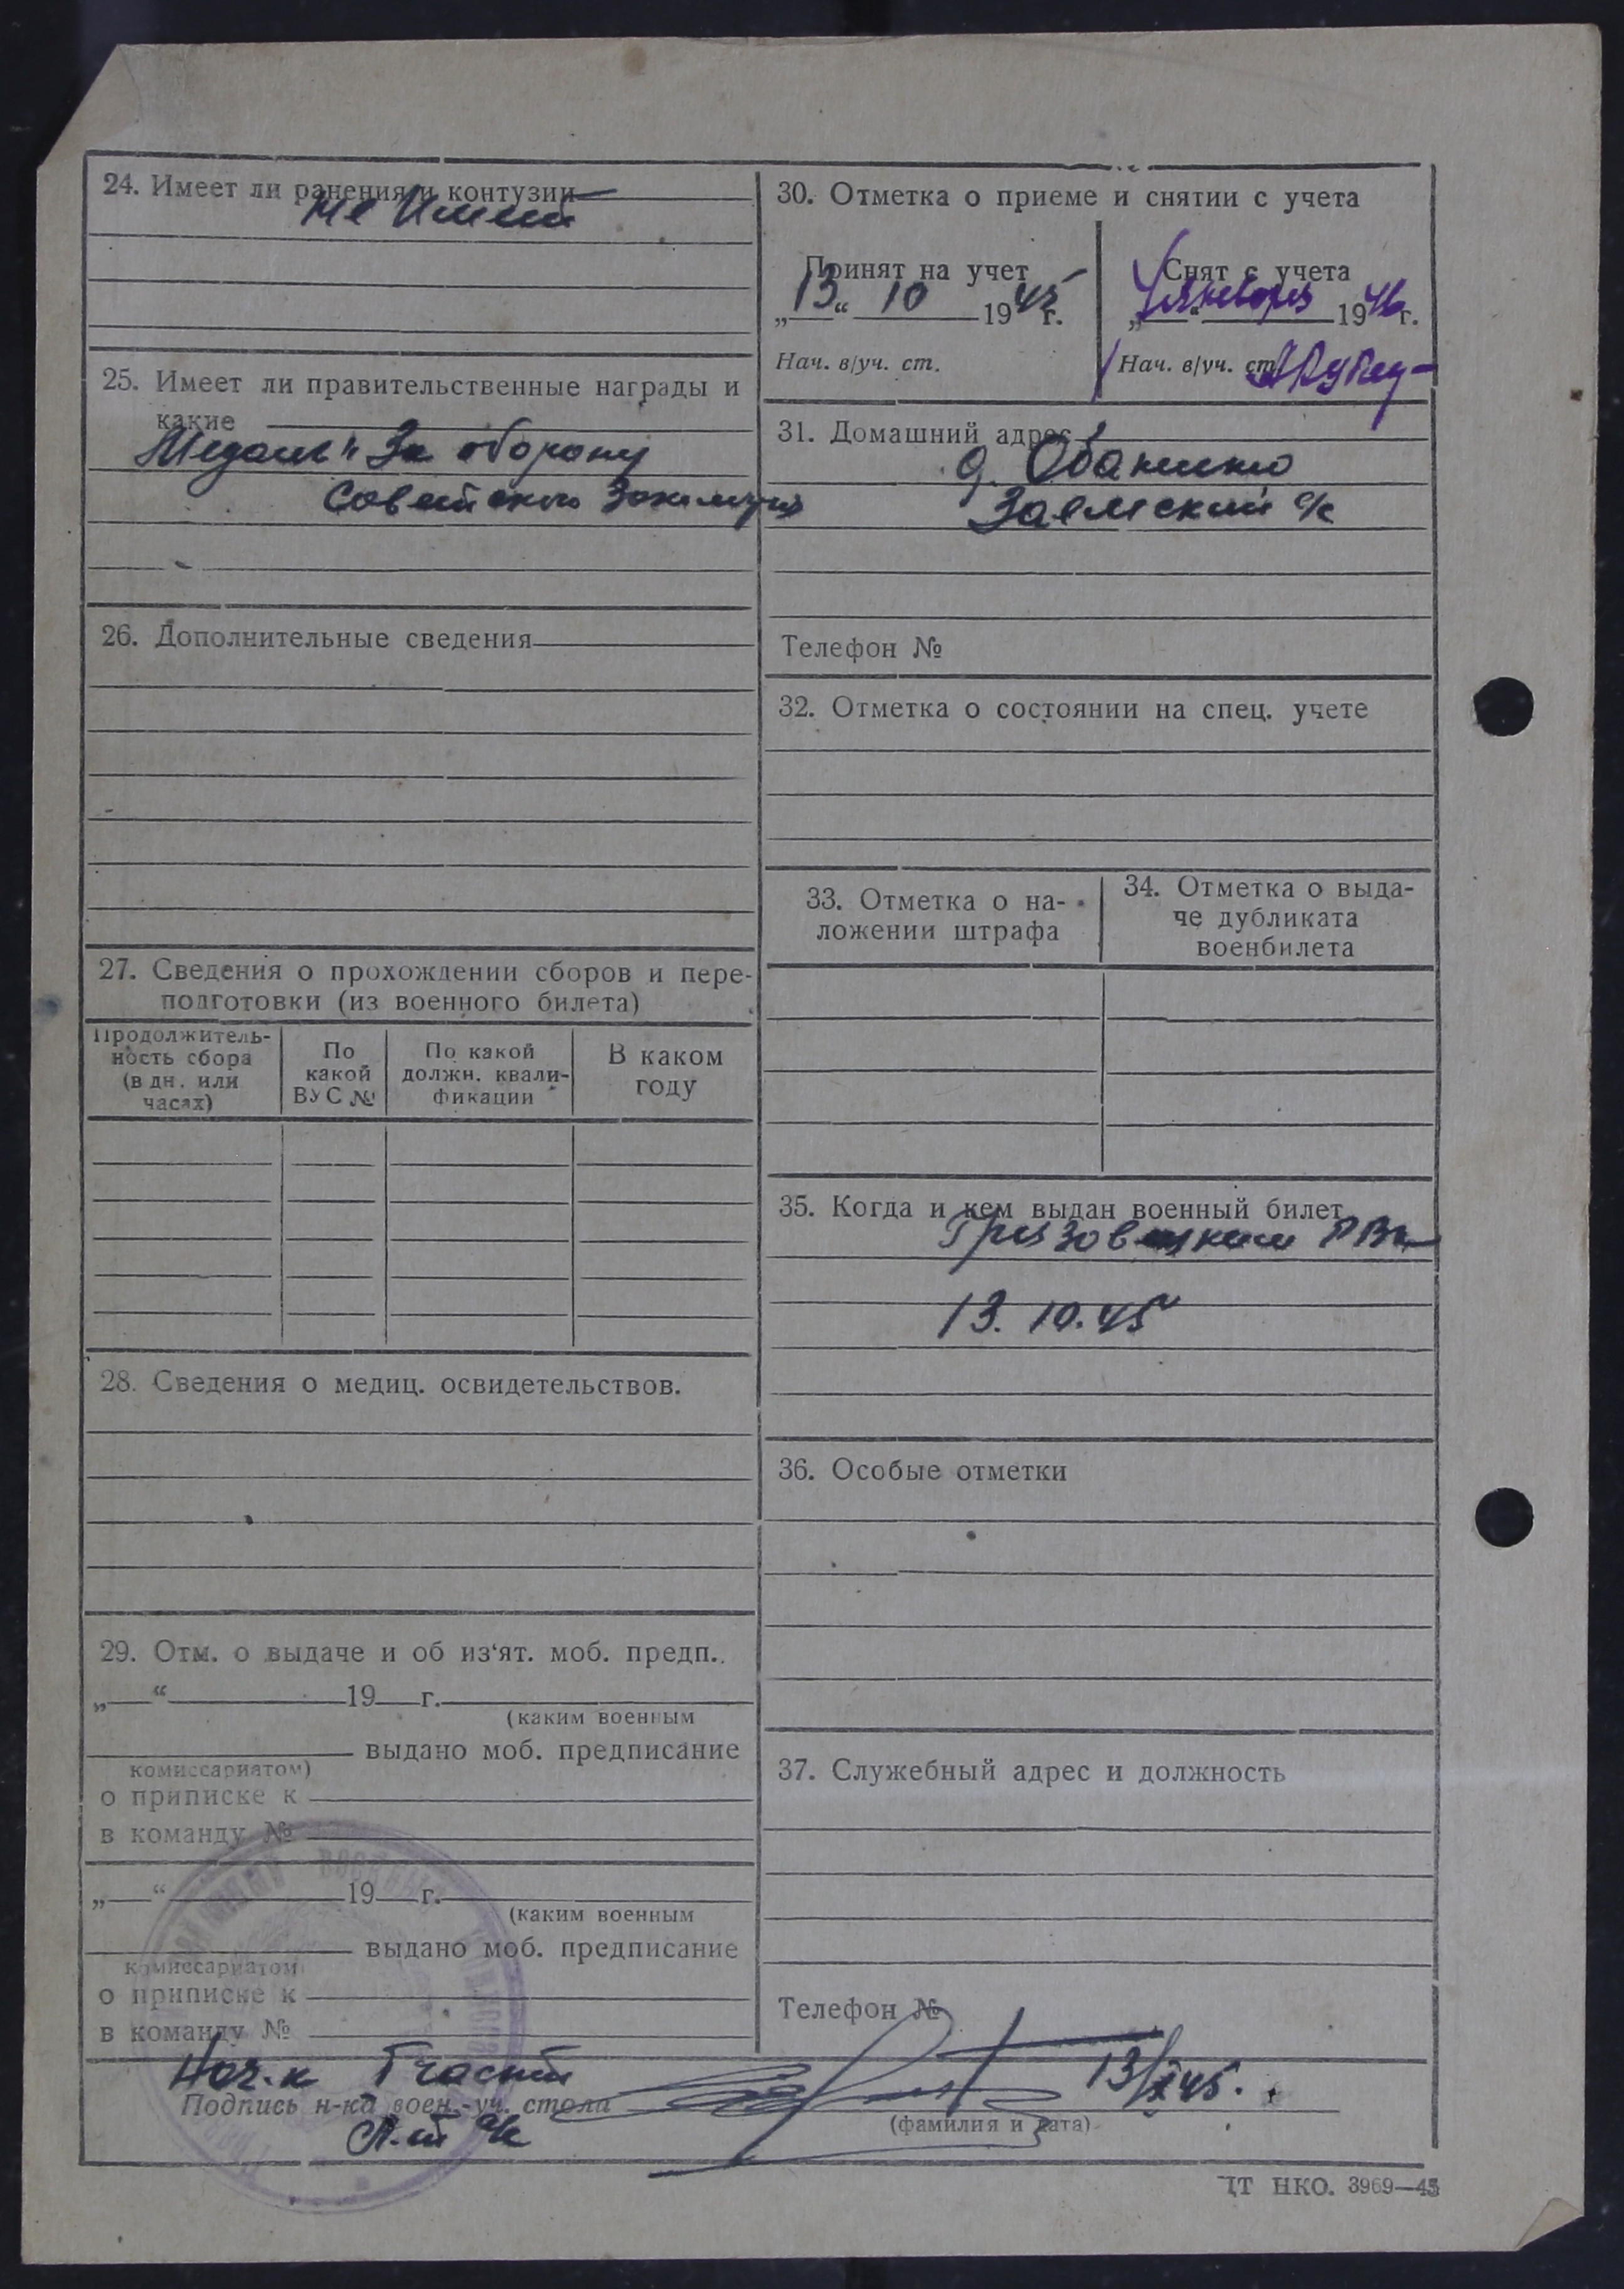 24. Имеет ли ранения и контузии
не имеет
25. Имеет ли правительственные награды и
какие
Медаль "За оборону
Советского Заполярья
26. Дополнительные сведения
27. Сведения о прохождении сборов и пере-
подготовки (из военного билета)
Продолжитель-
ность сбора
(в дн. или
часах)
По
какой
ВУС №
По какой
должн. квали-
фикации
В каком
году
28. Сведения о медиц. освидетельствов.
29. Отм. о выдаче и об из'ят. моб. предп.
„ “ 19 г.
(каким военным
выдано моб. предписание
комиссариатом)
о приписке к
в команду №
„ “ 19 г.
(каким военным
выдано моб. предписание
комиссариатом)
о приписке к
в команду №
30. Отметка о приеме и снятии с учета
Принят на учет
„13“ 10 1945 г.
Нач. в/уч. ст.
Снят с учета
„ “ января 1946 г.
Нач. в/уч. ст.
31. Домашний адрес
д.
Заемский с/с
Телефон №
32. Отметка о состоянии на спец. учете
33. Отметка о на-
ложении штрафа
34. Отметка о выда-
че дубликата
военбилета
35. Когда и кем выдан военный билет
Грязовецким РВК
13.10.45
36. Особые отметки
37. Служебный адрес и должность
Телефон №
Нач-к 1 части
Подпись н-ка воен.-уч. стола
13/X 45.
(фамилия и дата)
ЦТ НКО. 3969—45